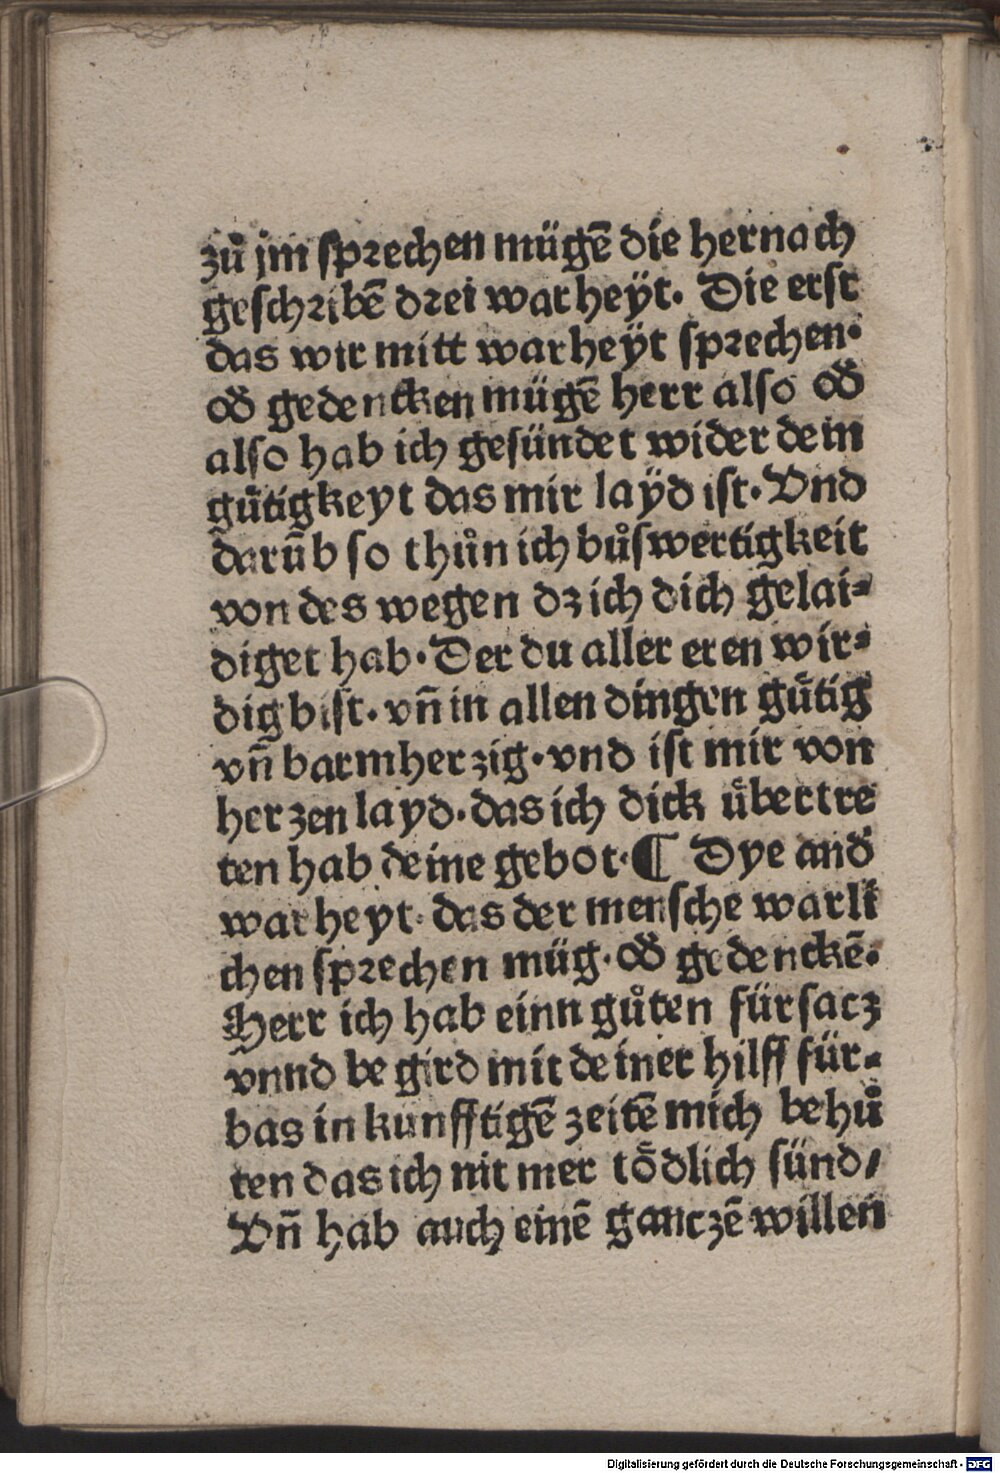 zuͦ jm sprechen mügē die hernach
geschribē drei warheÿt. Die erst
das wir mitt warheÿt sprechen.
od̛ gedencken mügē herr also od̛
also hab ich gesündet wider dein
guͤtigkeyt das mir laÿd ist. Vnd
darūb so thuͦn ich buͦswertigkeit
von des wegen dz ich dich gelai⸗
diget hab. Der du aller eren wir⸗
dig bist. vn̄ in allen dingen guͤtig
vn̄ barmherzig. vnd ist mir von
herzen layd. das ich dick uͤbertre
ten hab deine gebot. ¶ Dye and̛
warheyt. das der mensche warli
chen sprechen müg. od̛ gedenckē.
Herr ich hab einn guͦten fürsacz
vnnd begird mit deiner hilff für⸗
bas in kunfftigē zeitē mich behuͦ
ten das ich nit mer toͤdlich sünd/
Vn̄ hab auch einē ganczē willen
Digitalisierung gefördert durch die Deutsche Forschungsgemeinschaft - DFG